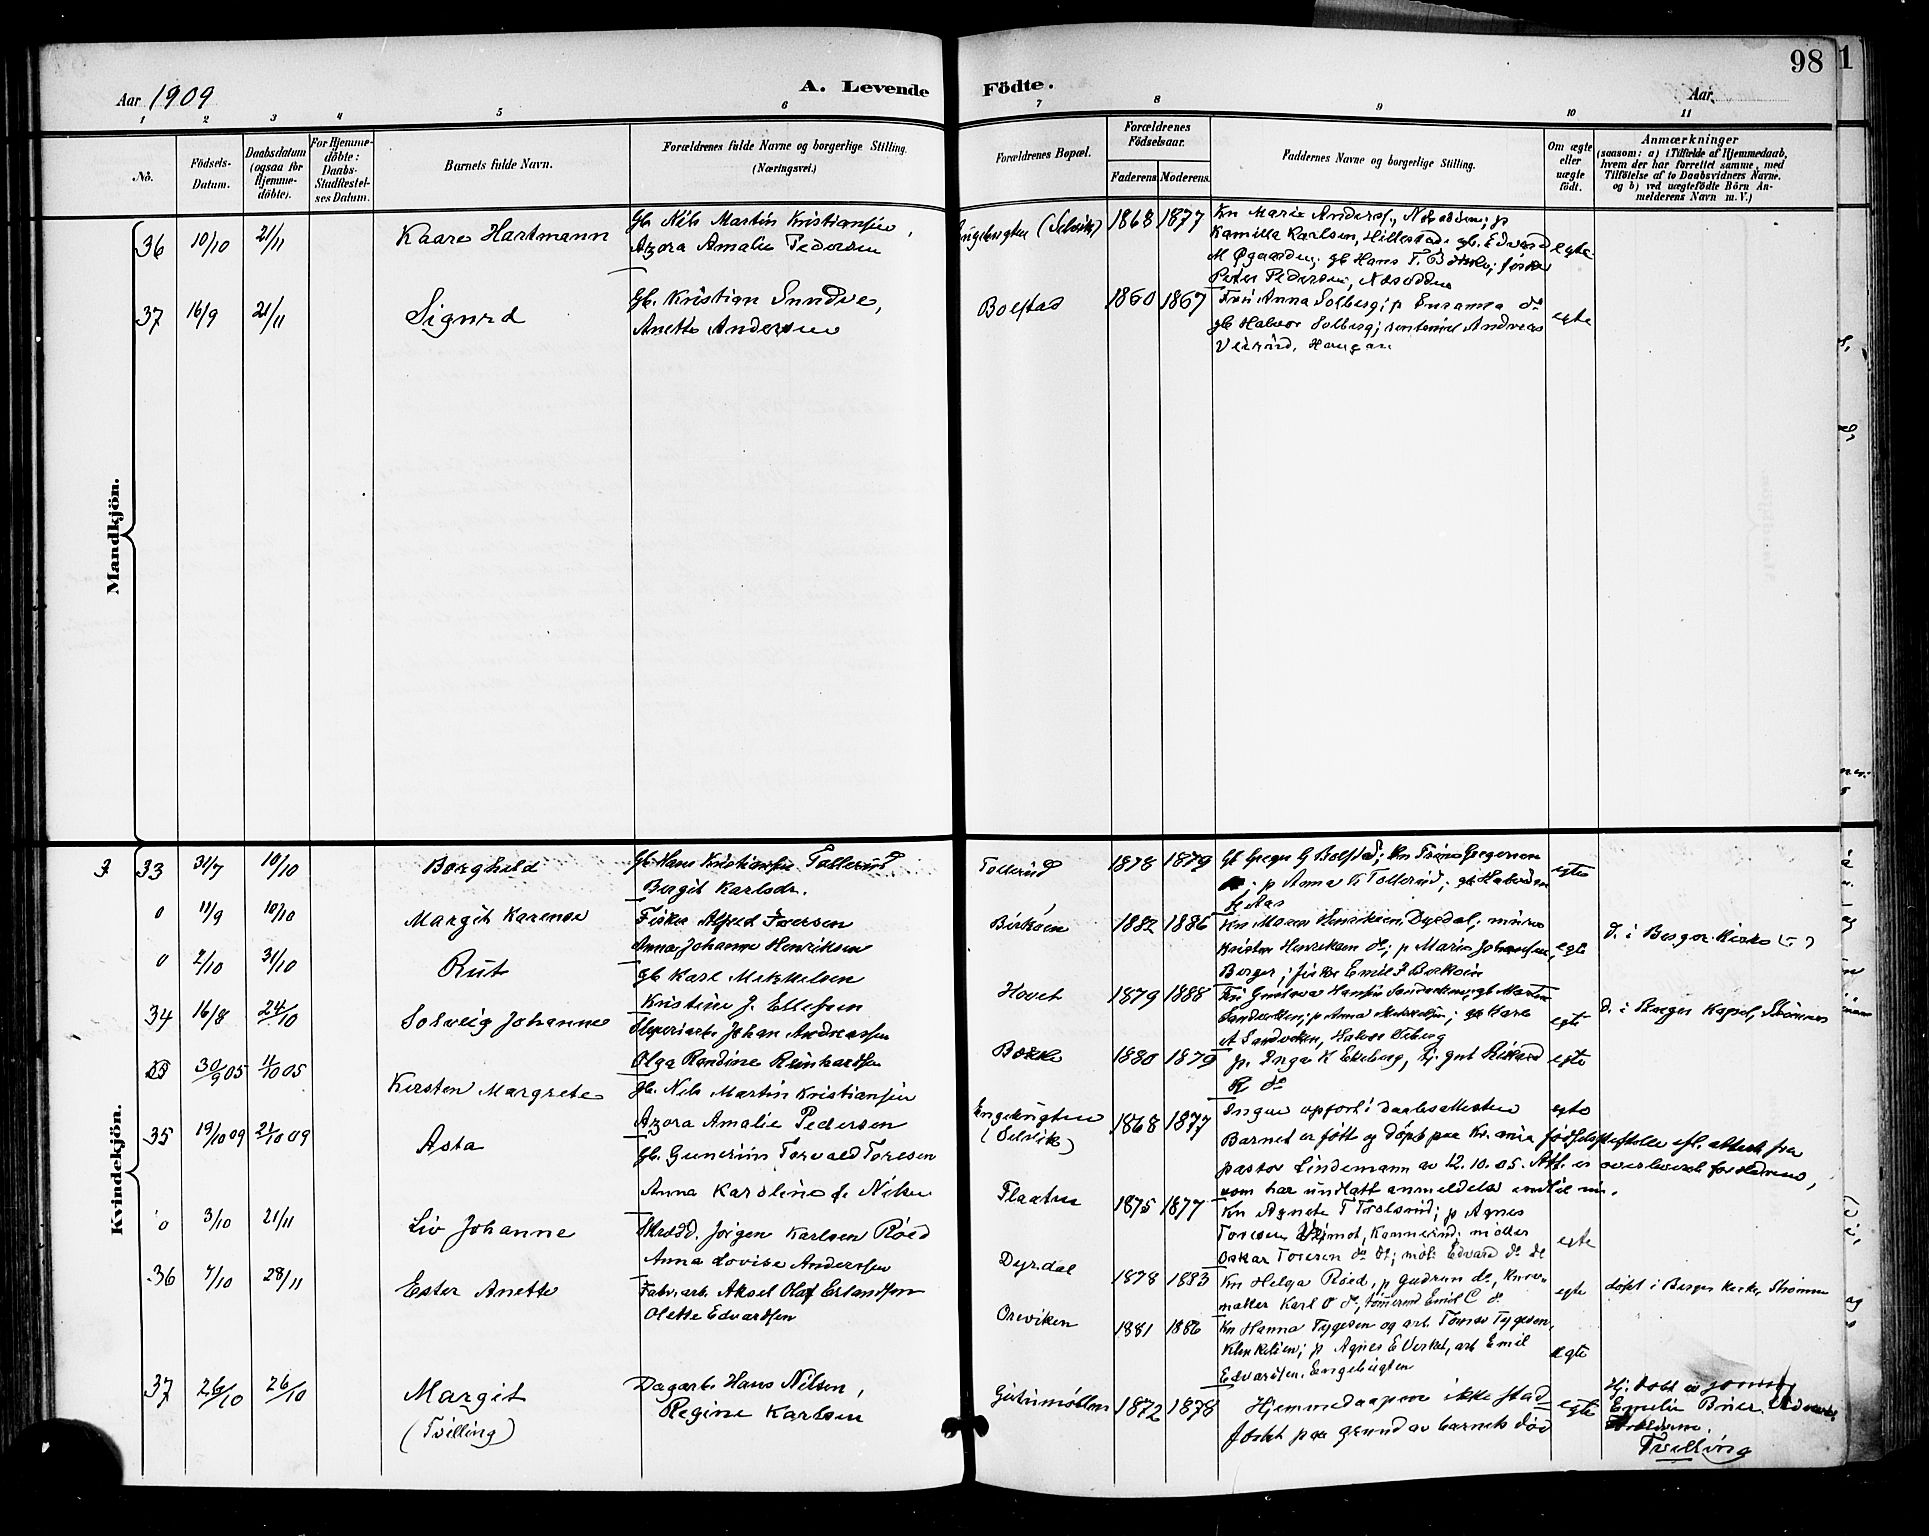 98
1
Aar 1909
A. Levende
Födte.
Aar
1 2 3 4 5 6 7 8 9 10 11
No.
Födsels-Datum.
Daabsdatum (ogsaa for Hjemme-döbte).
For Hjemme-döbte: Daabs-Stadfæstel-ses Datum.
Barnets fulde Navn.
Forældrenes fulde Navne og borgerlige Stilling.
(Næringsvei.)
Forældrenes Bopæl.
Forældrenes Födselsaar.
Faderens. Moderens.
Faddernes Navne og borgerlige Stilling.
Om ægte eller uægte födt.
Anmærkninger
(saasom: a) i Tilfælde af Hjemmedaab,
hvem der har forrettet samme, med
Tilföielse af to Daabsvidners Navne.
og b) ved uægtefödte Börn An-
melderens Navn m. V.)
Mandkjön.
36 10/10 21/11 Kaare Hartmann
Gb. Nils Martin Kristiansen,
Azora Amalie Pedersen
(Selvik) 1868 1877
Kn Marie Anders., p
Kamilla Karlsen, Hillestad. gb. Edvard
gb Hans T.
Peter Pedersen, Nesodden
egte
37 16/9 21/11 Sigurd
Gb. Kristian Sundve,
Anette Andersen
Bolstad 1860 1867
Fru Anna Solberg; p Susanna do
gb Halvor Solberg; Andreas
Haugan
egte
Kvindekjön.
33 31/7 10/10 Borghild
Gb. Hans Kristiansen Tollerud
Birgit Karlsdr.
Tollerud 1878 1879
Gb Greger G Bolstad; Kn Gregersen
p Anna K Tollerud; gb Halvdan
Aas
egte
0 11/9 10/10 Margit Karense
Fisker Alfred Iversen
Anna Johanne Henriksen
Birkøen 1882 1886
Kn Maren Henriksen Dyrdal; murer
Kristen Henriksen do; p Marie Johansen,
Berger; fisker Emil J Birkøen
egte
D. i Berger Kirke
0 2/10 31/10 Rut
Gb Karl Mikkelsen
Kristine J. Ellefsen
Hovet 1879 1888
Fru Gustava Hansen Sandvken, gb Martin
Sandvken; p Anna Mikkelsen; gb Karl
A Sandviken, Halvor
egte
D. i Berger Kapel, Strømmen
34 16/8 24/10 Solveig Johanne
Sleperiarb. Johan Andreassen
Olga Randine Reinhardsen
Bakke 1880 1879
p. Inga K Ekeberg, tj. gut Rikard
R do
egte
30/9 05 11/10 05 Kirsten Margrete
Gb. Nils Martin Kristiansen
Azora Amalie Pedersen
Engebugten
(Selvik) 1868 1877
Ingen opført i daabsattesten
egte
Barnet er født og døpt paa Kr.ania fødselsstiftelse efl. attest fra
pastor Lindemann av 12.10.05. Att. er overleveret forældrene,
som har undlatt anmeldelse indtil nu.
35 19/10 09 21/10 09 Asta
Gb. Gunerius Torvald Toresen
Anna Karoline f. Nilsen
Flaaten 1875 1877
Kn Agnete T Trolsrud; p Agnes
Toresen, Kammerud; møller
Oskar Toresen do do; møl. Edvard do do
egte
0 3/10 21/11 Liv Johanne
Skrædd. Jørgen Karlsen Røed
Anna Lovise Anderssen
Dyrdal 1878 1883
Kn Helga Røed, p Gudrun do,
møller Karl O do, tømmermd Emil C do
egte
døbt i Berger Kirke, Strømmen
36 7/10 28/11 Ester Anette
Fabr.arb. Aksel Olaf Erlandsen
Olette Edvardsen
Oreviken 1881 1886
Kn Hanna Tygesen og arb Tomas Tygesen,
Klenkelien; p Agnes E Verket, arb Emil
Edvardsen, Engebugten
egte
37 26/10 26/10 Margit
(Tvilling)
Dagarb. Hans Nilsen,
Regine Karlsen
1872 1878
Hjemmedaapen ikke stad-
fæstet paa grund av barnets død
egte
Hj. døbt av jorm.
Emilie
Tvilling